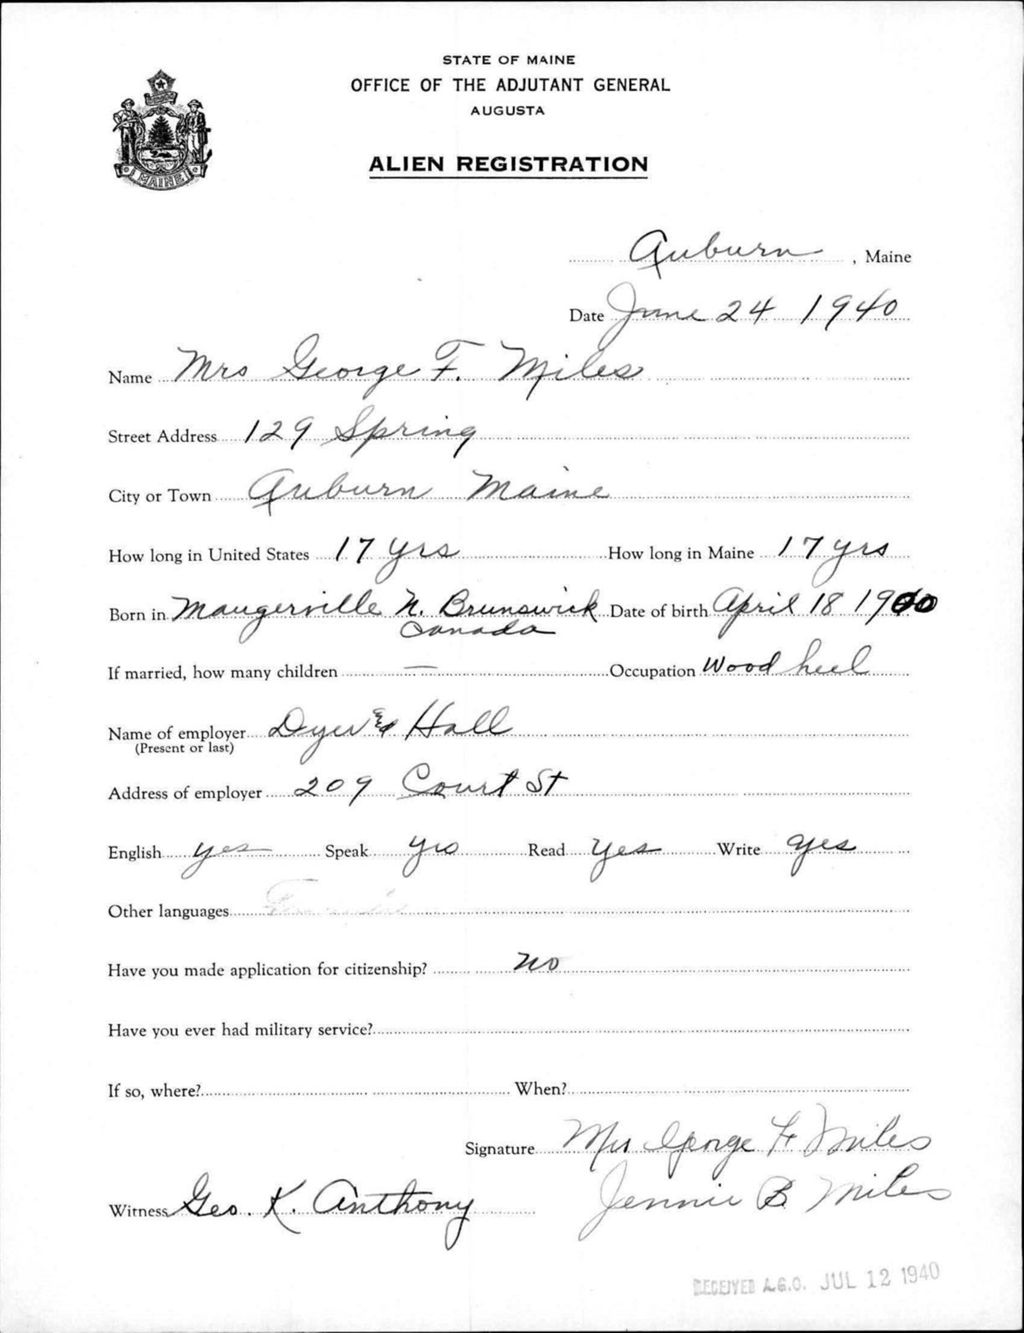 STATE OF MAINE
OFFICE OF THE ADJUTANT GENERAL
AUGUSTA
MAINE
ALIEN REGISTRATION
Auburn, Maine
Date June 24 1940
Name Mrs George F. Miles
Street Address 129 Spring
City or Town Auburn Maine
How long in United States 17 yrs How long in Maine 17 yrs
Born in Maugerville N. Brunswick Date of birth April 18 1900
Canada
If married, how many children — Occupation Wood heel
Name of employer Dyer & Hall
(Present or last)
Address of employer 209 Court St
English yes Speak yes Read yes Write yes
Other languages
Have you made application for citizenship? no
Have you ever had military service?
If so, where? When?
Signature Mrs George F Miles
Witness Geo. K. Anthony Jennie B Miles
RECEIVED A.G.O. JUL 12 1940